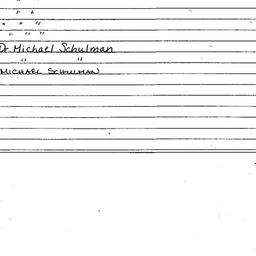 "
" "
" " "
" " "
Dr. Michael Schulman
" "
MICHAEL SCHULMAN